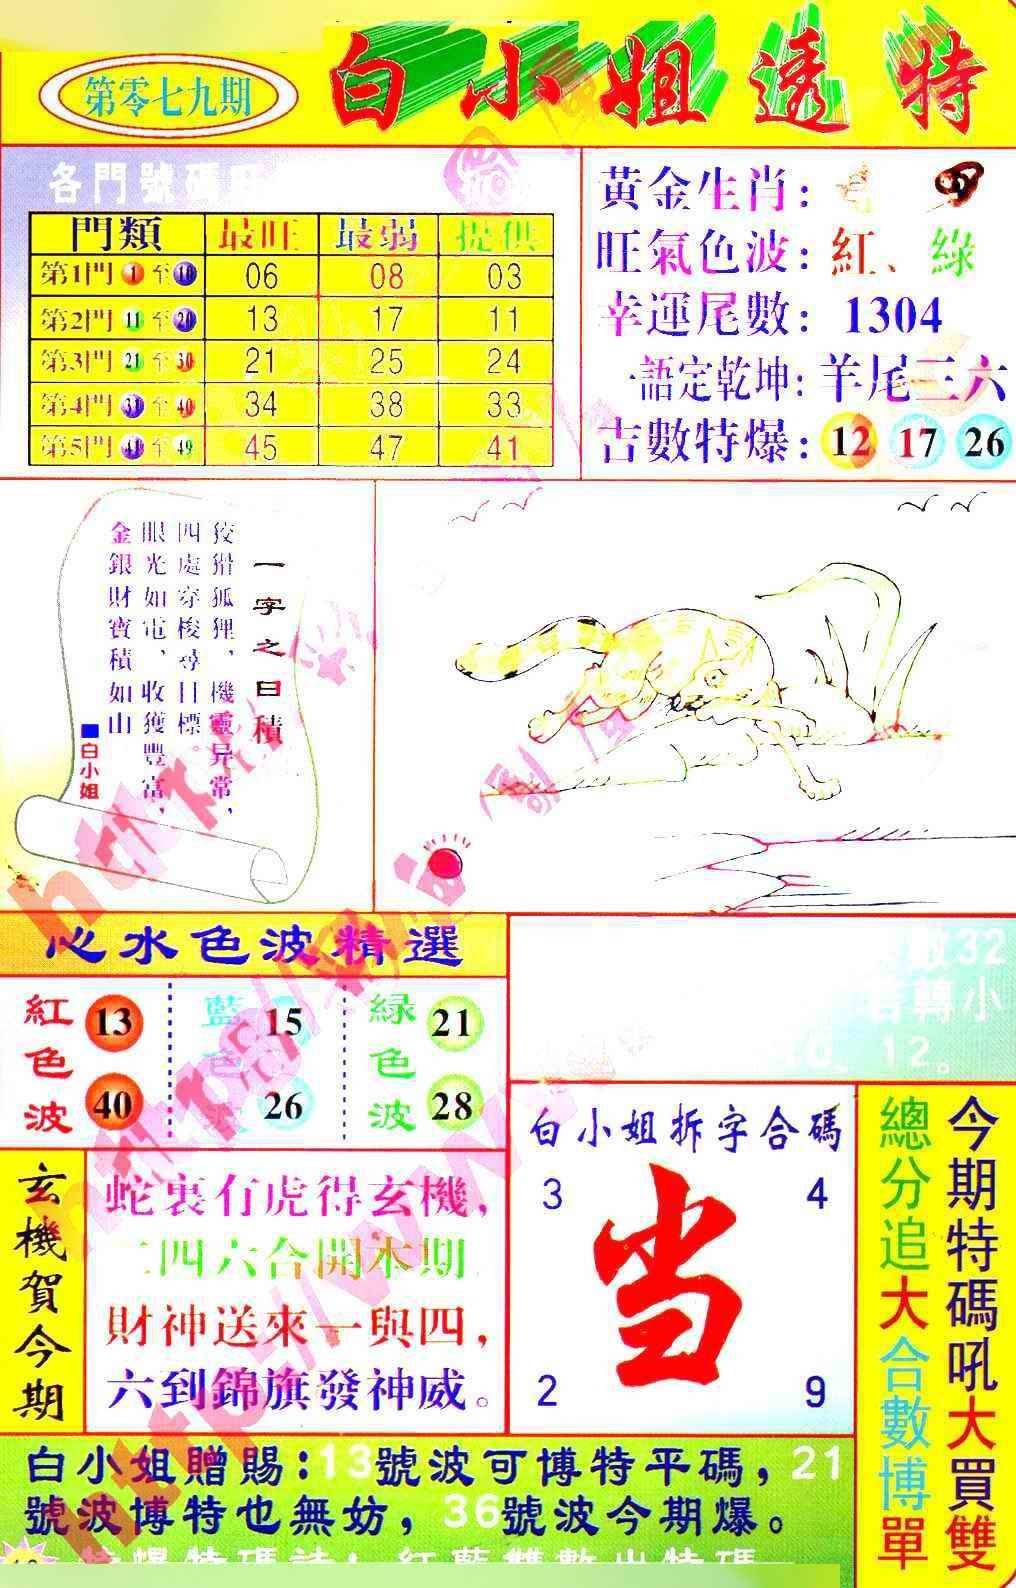 第零七九期
白小姐透特
各門號碼
門類 最旺 最弱 提供
第1門 1 至 10 06 08 03
第2門 11 至 20 13 17 11
第3門 21 至 30 21 25 24
第4門 31 至 40 34 38 33
第5門 41 至 49 45 47 41
黃金生肖:
旺氣色波:紅、綠
幸運尾數:1304
一語定乾坤:羊尾三六
吉數特爆:12 17 26
一字之曰積
狡猾狐狸、機靈异常,
四處穿梭尋目標。
眼光如電、收獲豐富,
金銀財寶積如山
■白小姐
心水色波精選
紅色波 13 40
藍色波 15 26
綠色波 21 28
32
轉小
12。
玄機賀今期
蛇裏有虎得玄機,
二四六合開本期
財神送來一與四,
六到錦旗發神威。
白小姐拆字合碼
3 4
当
2 9
今期特碼吼大買雙
總分追大合數博單
白小姐贈賜:13號波可博特平碼,21
號波博特也無妨,36號波今期爆。